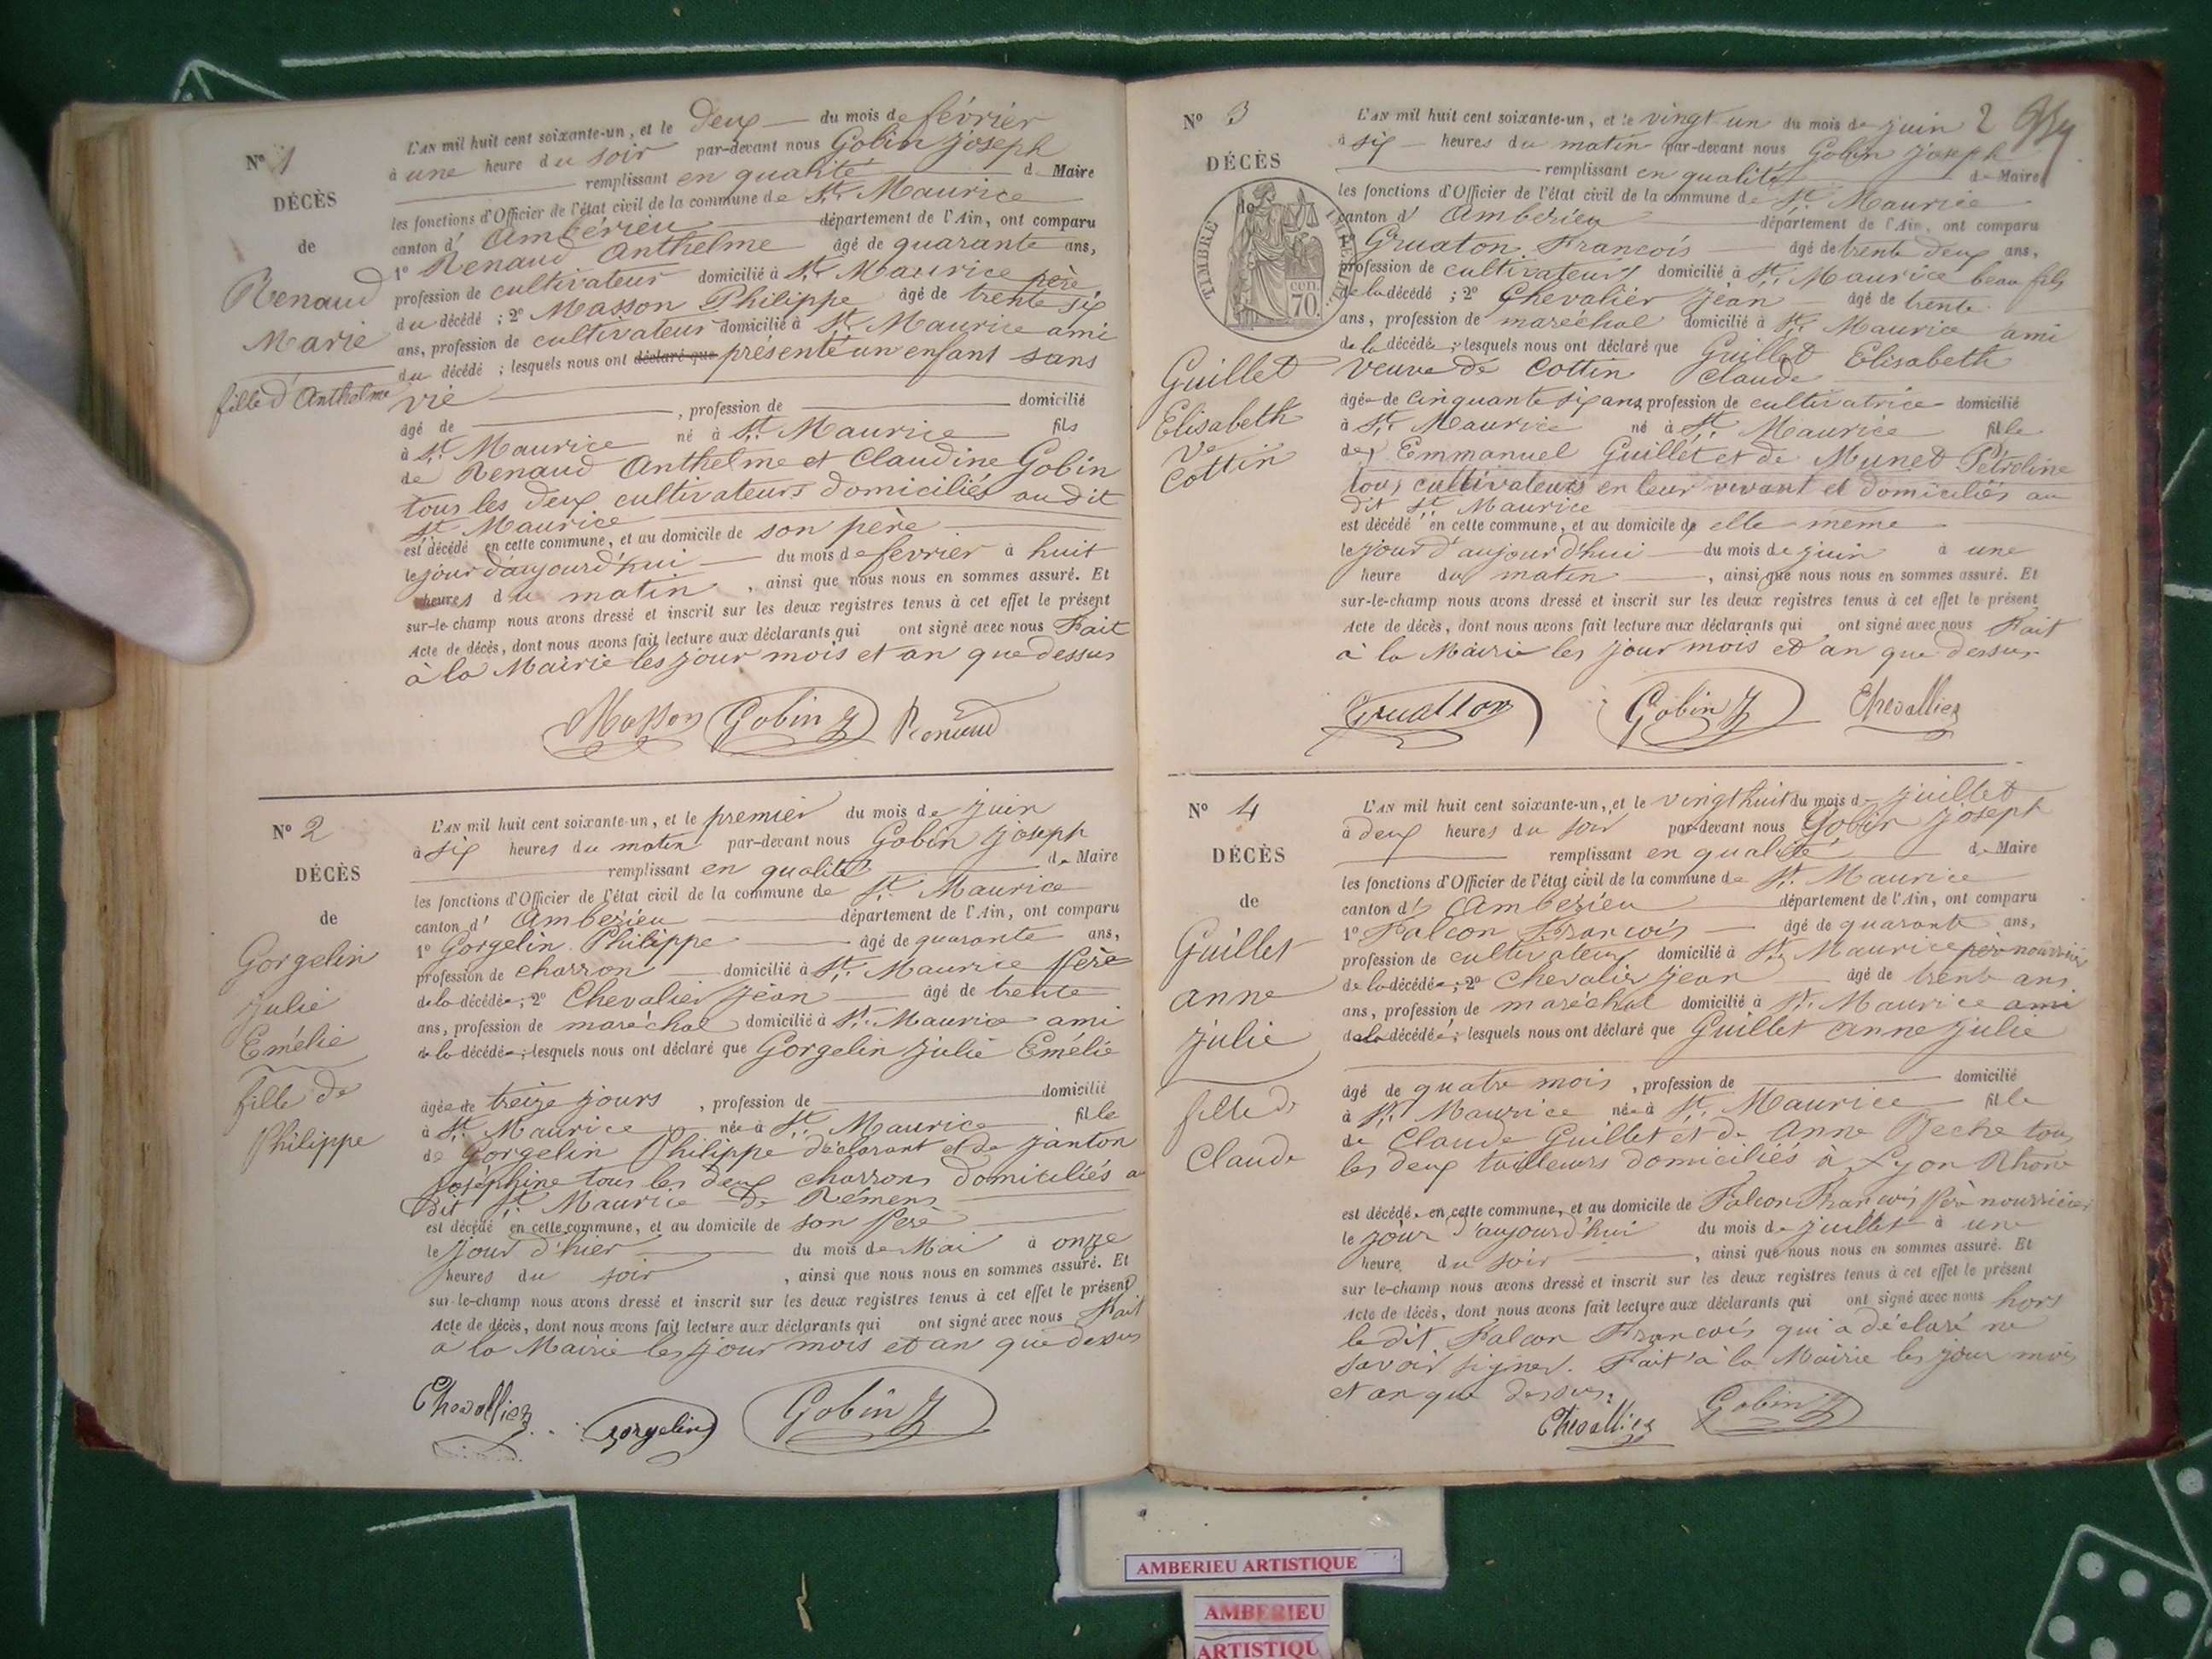 Nº 1
DÉCÈS
de
Renaud
Marie
fille d'Anthelme
L'AN mil huit cent soixante-un, et le deux du mois de février
à une heure du soir par-devant nous Gobin Joseph
remplissant en qualité de Maire
les fonctions d'Officier de l'état civil de la commune de St. Maurice
canton d' Ambérieu département de l'Ain, ont comparu
1º Renaud Anthelme âgé de quarante ans,
profession de cultivateur domicilié à St. Maurice père
du décédé ; 2º Masson Philippe âgé de trente six
ans, profession de cultivateur domicilié à St. Maurice ami
du décédé ; lesquels nous ont déclaré que présenté un enfant sans
vie
âgé de , profession de domicilié
à St. Maurice né à St. Maurice fils
de Renaud Anthelme et Claudine Gobin
tous les deux cultivateurs domiciliés au dit
St. Maurice
est décédé en cette commune, et au domicile de son père
le jour d'aujourd'hui du mois de février à huit
heures du matin , ainsi que nous nous en sommes assuré. Et
sur-le-champ nous avons dressé et inscrit sur les deux registres tenus à cet effet le présent
Acte de décès, dont nous avons fait lecture aux déclarants qui ont signé avec nous Fait
à la Mairie les jour mois et an que dessus
Masson Gobin J Renaud
Nº 2
DÉCÈS
de
Gorgelin
Julie
Emélie
fille de
Philippe
L'AN mil huit cent soixante-un, et le premier du mois de juin
à six heures du matin par-devant nous Gobin Joseph
remplissant en qualité de Maire
les fonctions d'Officier de l'état civil de la commune de St. Maurice
canton d' Ambérieu département de l'Ain, ont comparu
1º Gorgelin Philippe âgé de quarante ans,
profession de charron domicilié à St. Maurice Père
de la décédée ; 2º Chevalier Jean âgé de trente
ans, profession de maréchal domicilié à St. Maurice ami
de la décédée ; lesquels nous ont déclaré que Gorgelin Julie Emélie
âgée de treize jours , profession de domicilié
à St. Maurice née à St. Maurice fille
de Gorgelin Philippe déclarant et de Janton
Joséphine tous les deux charrons domiciliés a
Dit St. Maurice de Rémens
est décédé en cette commune, et au domicile de son Père
le jour d'hier du mois de Mai à onze
heures du soir , ainsi que nous nous en sommes assuré. Et
sur-le-champ nous avons dressé et inscrit sur les deux registres tenus à cet effet le présent
Acte de décès, dont nous avons fait lecture aux déclarants qui ont signé avec nous Fait
à la Mairie les jour mois et an que dessus
Chevallier Gorgelin Gobin J
2
Nº 3
DÉCÈS
de
TIMBRE IMPÉRIAL
70 CEN.
Guillet
Elisabeth
Ve
Cottin
L'AN mil huit cent soixante-un, et le vingt un du mois de juin
à six heures du matin par-devant nous Gobin Joseph
remplissant en qualité de Maire
les fonctions d'Officier de l'état civil de la commune de St. Maurice
canton d' Ambérieu département de l'Ain, ont comparu
Gruaton François âgé de trente deux ans,
profession de cultivateur domicilié à St. Maurice beau fils
de la décédé ; 2º Chevalier Jean âgé de trente
ans, profession de maréchal domicilié à St. Maurice ami
de la décédée ; lesquels nous ont déclaré que Guillet Elisabeth
veuve de Cottin Claude
âgée de cinquante six ans, profession de cultivatrice domicilié
à St. Maurice né à St. Maurice fille
de Emmanuel Guillet et de Munet Pétroline
tous cultivateurs en leur vivant et domiciliés au
dit St. Maurice
est décédé en cette commune, et au domicile de elle même
le jour d'aujourd'hui du mois de juin à une
heure du matin , ainsi que nous nous en sommes assuré. Et
sur-le-champ nous avons dressé et inscrit sur les deux registres tenus à cet effet le présent
Acte de décès, dont nous avons fait lecture aux déclarants qui ont signé avec nous Fait
à la Mairie les jour mois et an que dessus
Gruatton Gobin J Chevallier
Nº 4
DÉCÈS
de
Guillet
anne
julie
fille de
Claude
L'AN mil huit cent soixante-un, et le vingt huit du mois de juillet
à deux heures du soir par-devant nous Gobin Joseph
remplissant en qualité de Maire
les fonctions d'Officier de l'état civil de la commune de St. Maurice
canton d' Ambérieu département de l'Ain, ont comparu
1º Falcon François âgé de quarante ans,
profession de cultivateur domicilié à St. Maurice père nourricier
de la décédée ; 2º Chevalier Jean âgé de trente ans
ans, profession de maréchal domicilié à St. Maurice ami
de la décédée ; lesquels nous ont déclaré que Guillet anne julie
âgé de quatre mois , profession de domicilié
à St. Maurice née à St. Maurice fille
de Claude Guillet et de Anne tous
les deux tailleurs domiciliés à Lyon Rhône
est décédée en cette commune, et au domicile de Falcon François Père nourricier
le jour d'aujourd'hui du mois de juillet à une
heure du soir , ainsi que nous nous en sommes assuré. Et
sur le-champ nous avons dressé et inscrit sur les deux registres tenus à cet effet le présent
Acte de décès, dont nous avons fait lecture aux déclarants qui ont signé avec nous hors
le dit Falcon François qui a déclaré ne
savoir signer. Fait à la Mairie les jour mois
et an que dessus.
Chevallier Gobin J
AMBERIEU ARTISTIQUE
AMBERIEU
ARTISTIQU